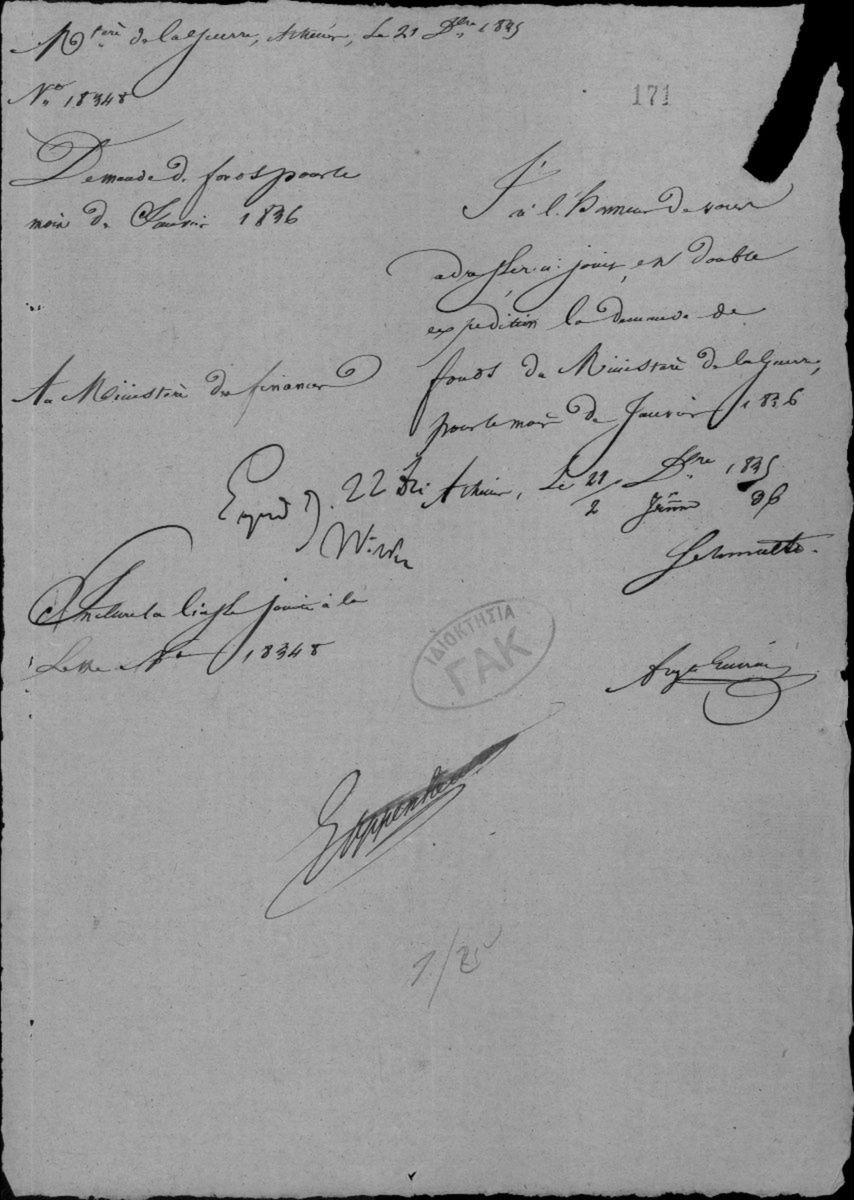 Mstère de la Guerre, Athènes, Le 21 Dbre 1835
No 18348
171
Demande de fonds pour le
mois de Janvier 1836
J'ai l'honneur de vous
adresser ci-joint, en double
expédition la demande de
fonds du Ministère de la Guerre,
pour le mois de Janvier 1836
Au Ministère des finances
Athènes, Le 21 Dbre 1835
2 36
22
Schmaltz.
Inclure la liasse jointe à la
Lettre No 18348
ΙΔΙΟΚΤΗΣΙΑ
ΓΑΚ